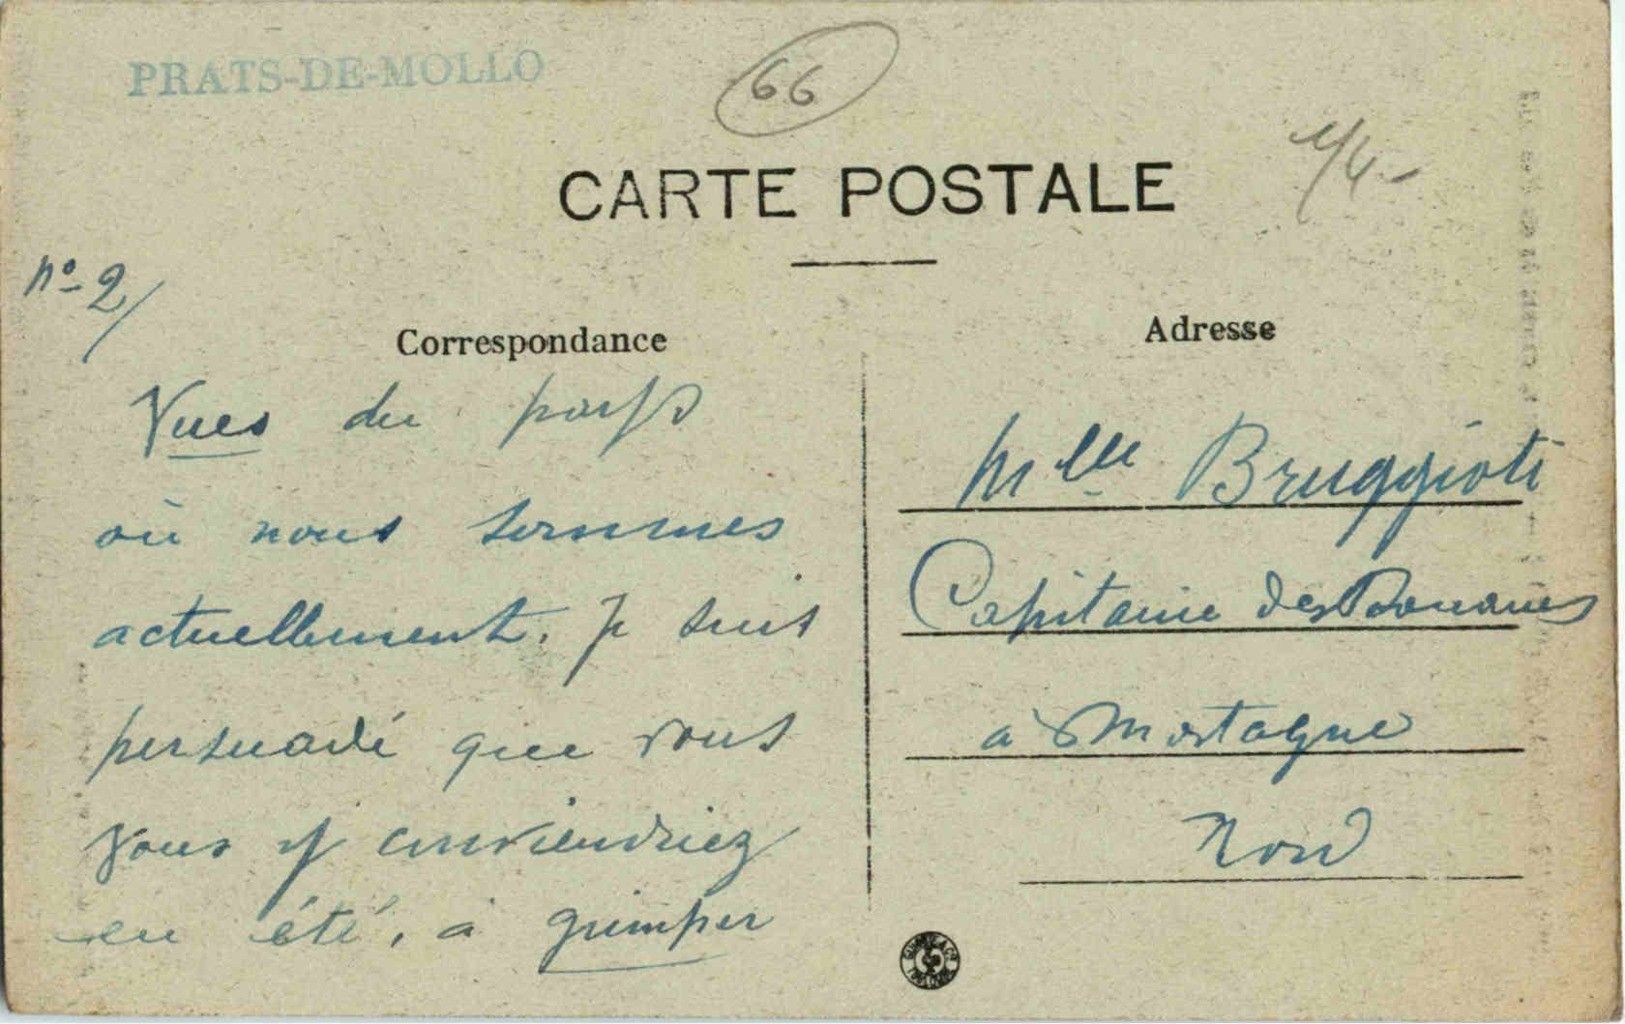 PRATS-DE-MOLLO
66
CARTE POSTALE
nº 2/
Correspondance
Vues du pays
où nous sommes
actuellement. Je suis
persuadé que vous
vous y conviendriez
en été, à grimper
Adresse
Mlle Bruggioti
Capitaine des Douanes
à Mortagne
Nord